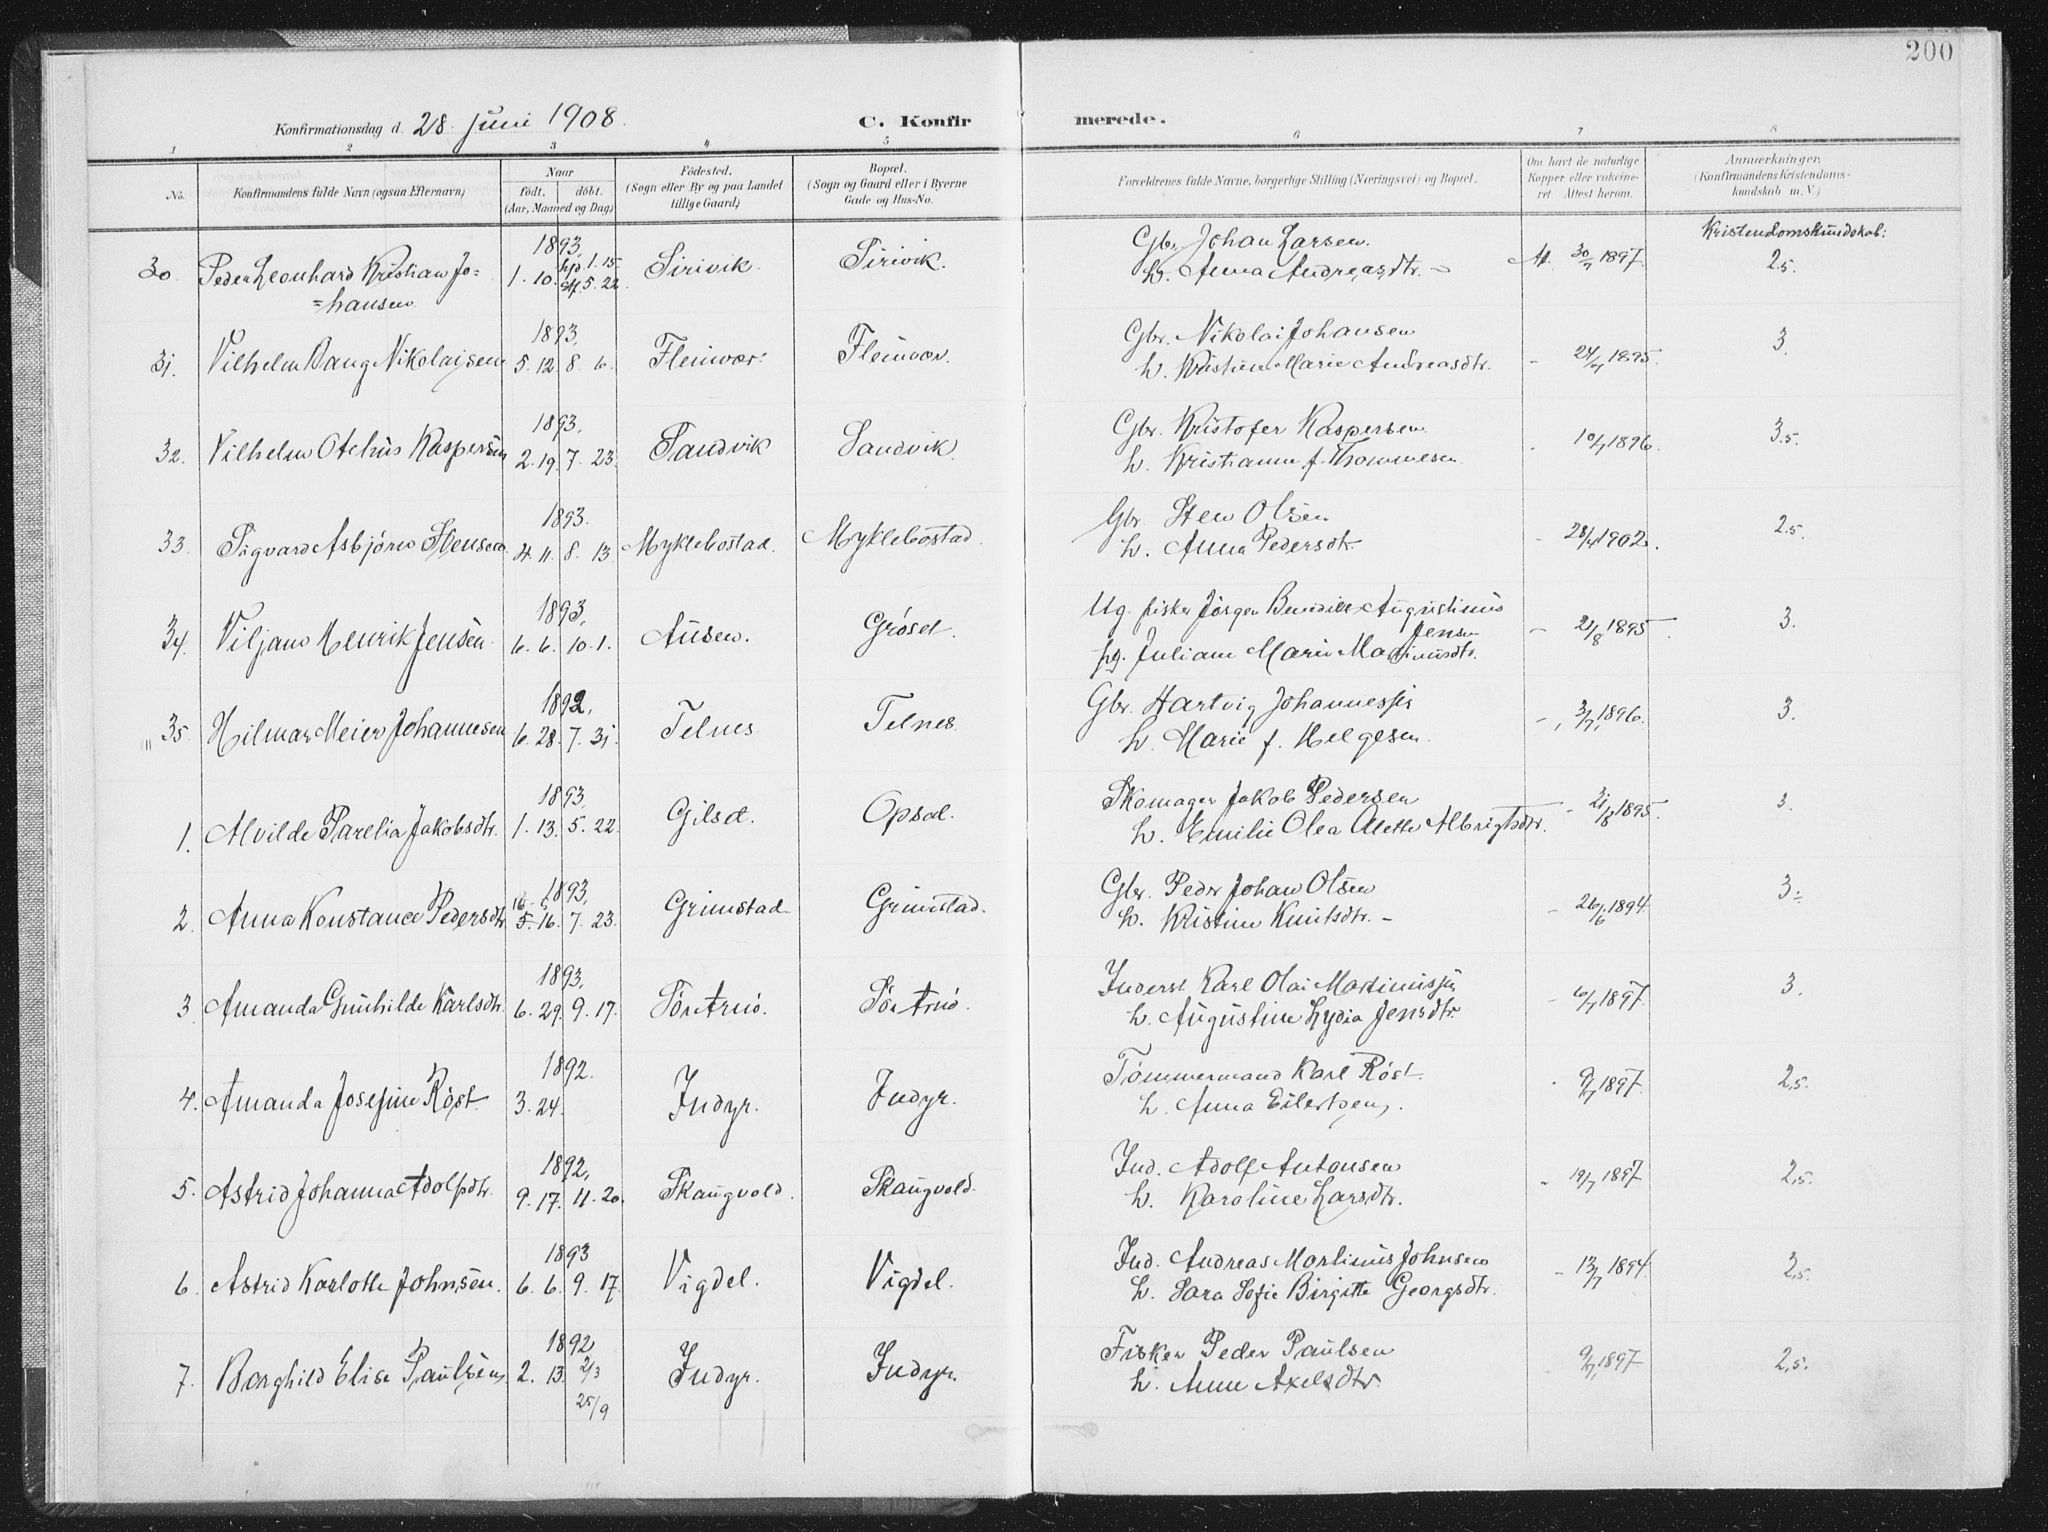 200
Konfirmationsdag d. 28. juni 1908. C. Konfirmerede.
1 2 3 4 5 6 7 8
No. Konfirmandens fulde Navn (ogsaa Efternavn) Naar født, døbt. (Aar, Maaned og Dag) Fødested. (Sogn eller By og paa Landet tillige Gaard) Bopæl. (Sogn og Gaard eller i Byerne Gade og Hus-No. Forældrenes fulde Navne, borgerlige Stilling (Næringsvei) og Bopæl. Om havt de naturlige Kopper eller vakcineret. Attest herom. Anmerkninger. (Konfirmandens Kristendomskundskab m. V.)
Kristendomskundskab:
1893,
30. Peder Leonhard Kristian Jo= 1. 10. 1. 15. Sirivik. Sirivik. Gbr. Johan Larsen. At. 30/7 1897. 2.5.
=hansen 5. 22. h. Anna Andreasdtr. -
1893,
31. Vilhelm Bang Nikolaisen 5. 12. 8. 6. Fleinvær. Fleinvær. Gbr. Nikolai Johansen - 24/7 1895. 3.
h. Kristine Marie Andreasdtr.
1893,
32. Vilhelm Otelius Kaspersen 2. 19. 7. 23. Sandvik Sandvik Gbr. Kristofer Kaspersen 10/7 1896. 3.5.
h. Kristianne f. Thommesen
1893.
33. Sigvard Asbjörn Stensen 4. 11. 8. 13. Myklebostad. Myklebostad. Gbr. Sten Olsen - 28/4 1902. 2.5.
h. Anna Pedersdtr.
1893,
34. Viljam Henrik Jensen. 6. 6. 10. 1. Ausen. Gröset. Ug. fisker Jörgen Benedikt Augustinus Jensen - 21/8 1895. 3.
pg. Juliane Marie Martinusdtr.
1892,
35. Hilmar Meier Johannesen 6. 28. 7. 31. Telnes Telnes. Gbr. Hartvig Johannessen - 3/7 1896. 3.
h. Marie f. Helgesen.
1893,
1. Alvilde Parelia Jakobsdtr. 1. 13. 5. 22. Gilset. Opsal. Skomager Jakob Pedersen - 21/8 1895. 3.
h. Emilie Olea Alette Albrigtsdtr.
1893,
2. Anna Konstance Pedersdtr. 5. 16. 7. 23. Grimstad Grimstad. Gbr. Peder Johan Olsen - 26/6 1894. 3÷
h. Kristine Knutsdtr. -
1893,
3. Amanda Gunhilde Karlsdtr. 6. 29. 9. 17. Sör Arnö. Sör Arnö. Inderst Karl Olai Martinussen - 6/7 1897. 3.
h. Augustine Lydia Jensdtr.
1892.
4. Amanda Josefine Röst. 3. 24. Indyr. Indyr. Tömmermand Karl Röst. 9/7 1897. 2,5.
h. Anna Eilertsen.
1892,
5. Astrid Johanna Adolfsdtr. 9. 17. 11. 20. Skaugvold. Skaugvold. Ind. Adolf Antonsen 19/7 1897 2,5.
h. Karoline Larsdtr.
1893
6. Astrid Karlotte Johnsen. 6. 6. 9. 17. Vigdel. Vigdel. Ind. Andreas Martinus Johnsen - 13/7 1894. 2,5.
h. Sara Sofie Birgitte Georgsdtr.
1892
7. Borghild Elise Paulsen 2. 13. 2/3 Indyr. Indyr. Fisker Peder Paulsen 9/7 1897 2,5.
25/9 h. Anne Axelsdtr.